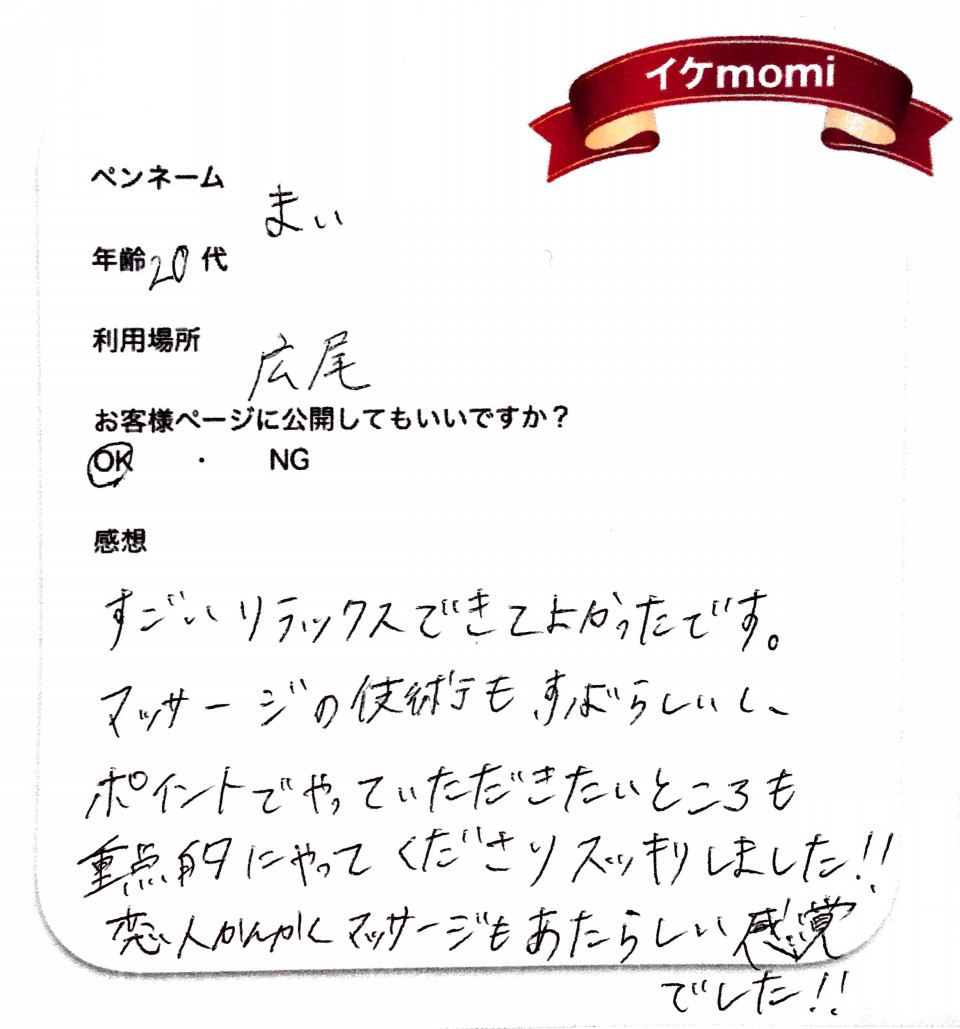 イケmomi
ペンネーム
まい
年齢20代
利用場所
広尾
お客様ページに公開してもいいですか？
OK ・ NG
感想
すごいリラックスできてよかったです。
マッサージの技術も すばらしいし、
ポイントでやっていただきたいところも
重点的にやってくださりスッキリしました!!
恋人かんかくマッサージもあたらしい感覚
でした!!